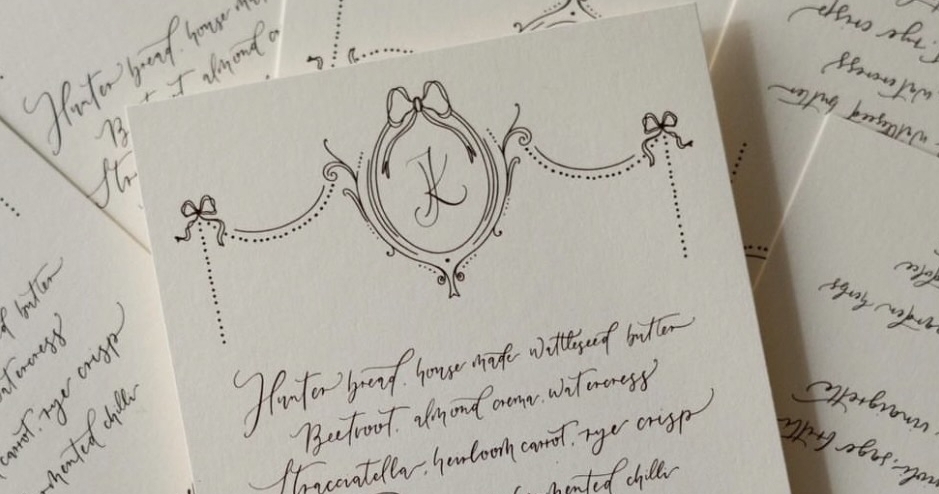 JK
Hunter bread, house made wattleseed butter
Beetroot, almond crema, watercress
Stracciatella, heirloom carrot, rye crisp
fermented chilli
Hunter bread, house
almond
butter
watercress
carrot, rye crisp
fermented chilli
rye crisp
watercress
wattleseed butter
garden herbs
vinaigrette